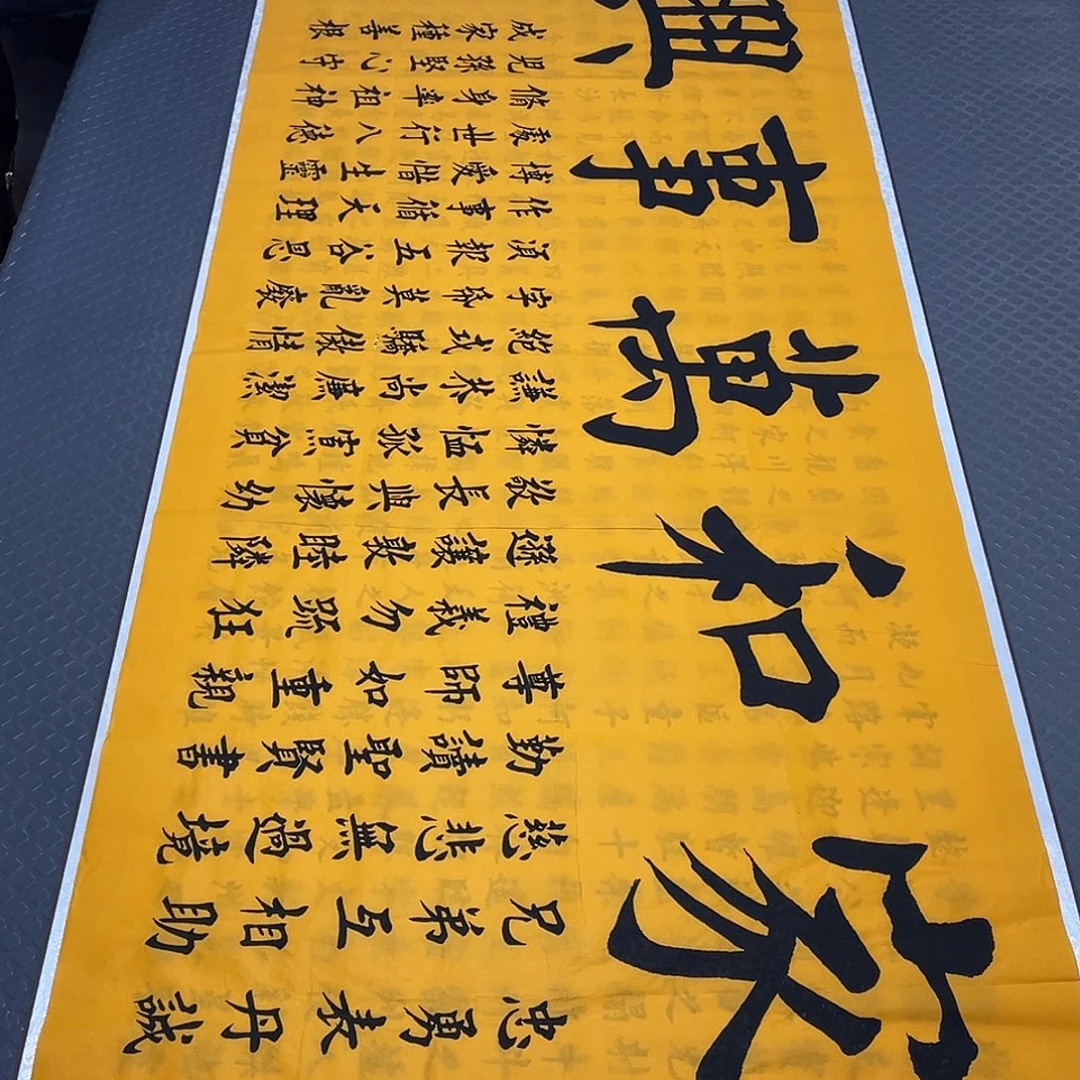 家和萬事興
忠勇表丹誠
兄弟互相助
慈悲無過境
勤讀聖賢書
尊師如重親
禮義勿疏狂
遜讓敦睦隣
敬長與懷幼
憐恤孤寡貧
謙恭尚廉潔
絕戒驕傲情
字紙莫亂廢
須報五谷恩
作事循天理
博愛惜生靈
處世行八德
脩身率祖神
兒孫堅心守
成家種善根